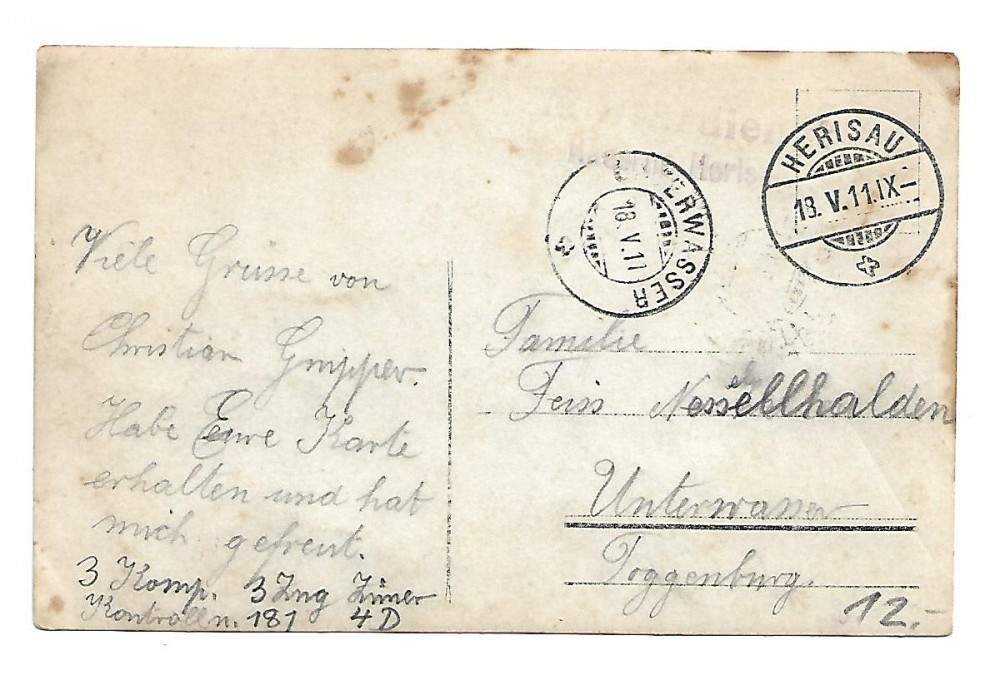 Viele Grüsse von
Christian Gmipper.
Habe Eure Karte
erhalten und hat
mich gefreut.
3 Komp. 3 Zug Zimer
Kontrolln. 181 4D
HERISAU
18. V. 11. IX–
UNTERWASSER
18. V. 11
Familie
Feiss Nesselhalden
Unterwasser
Toggenburg.
12.-